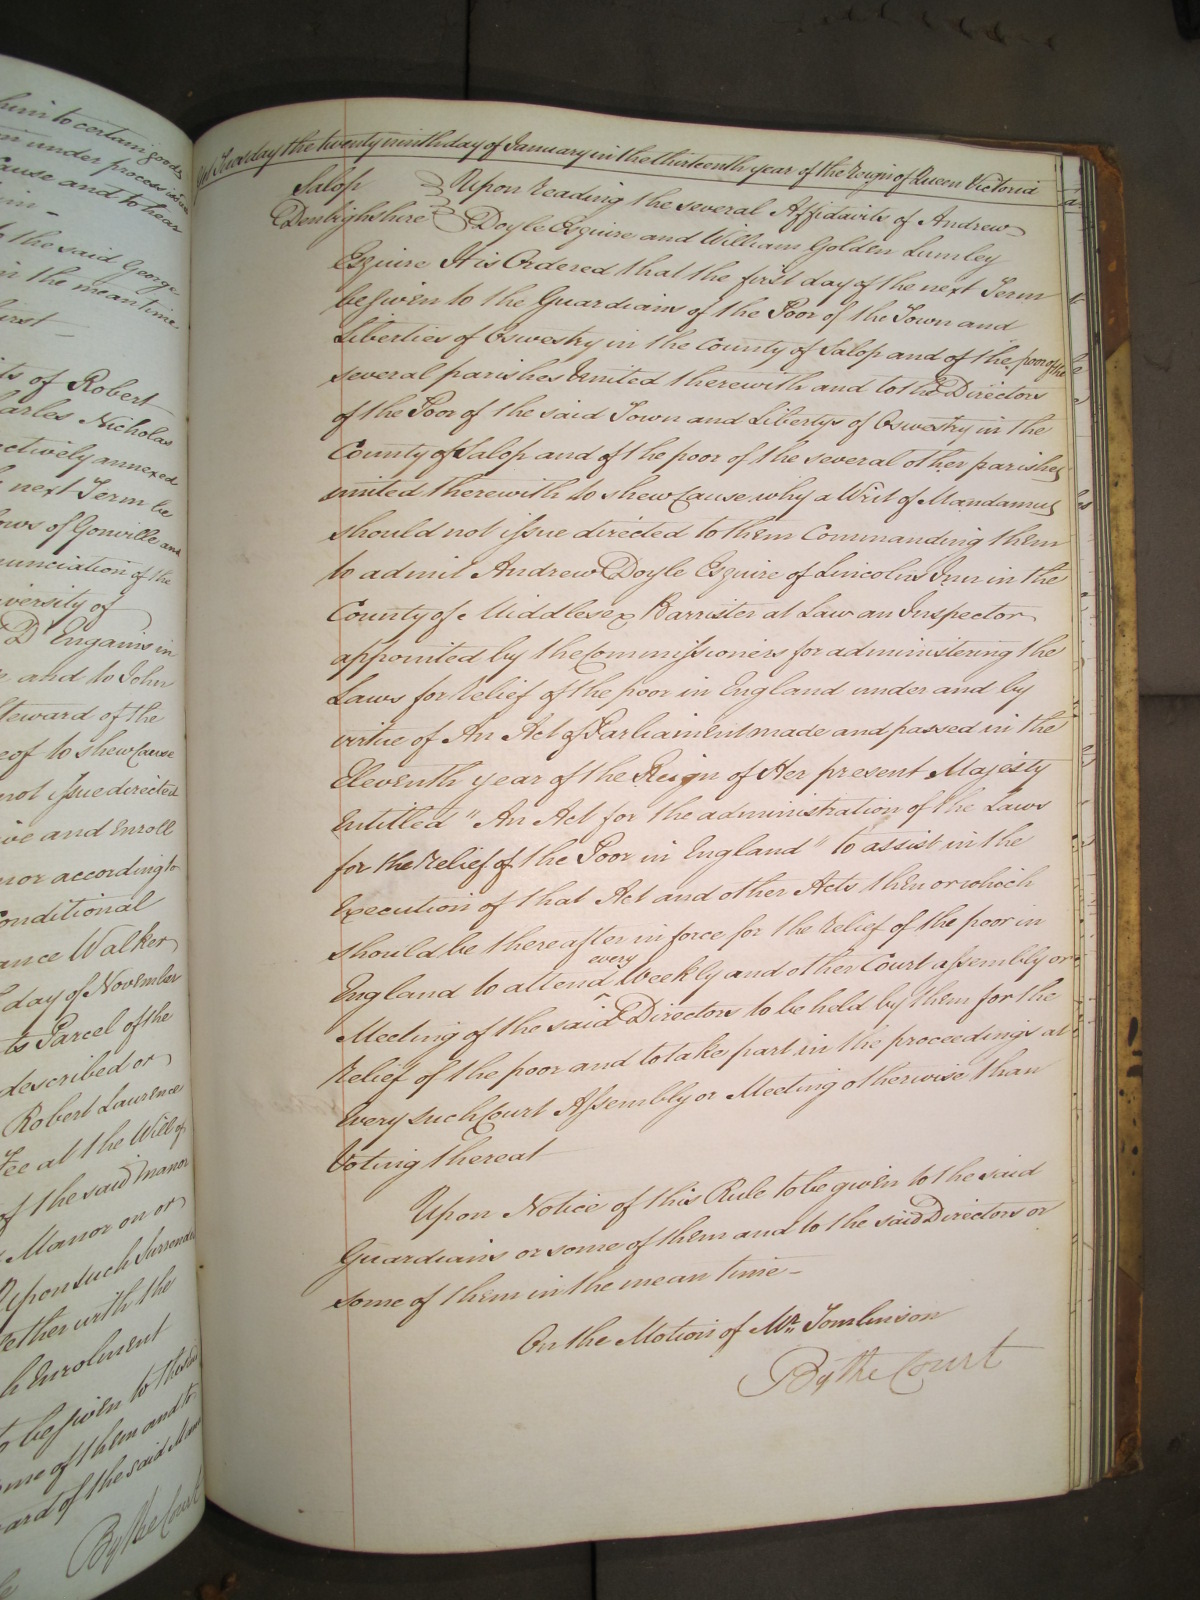 him to certain goods
under process
Cause and to hear
him -
the said George
in the mean time
first -
of Robert
Charles Nicholas
respectively annexed
next Term be
Fellows of Gonville and
Annunciation of the
University of
D'Engains in
and to John
Steward of the
to shew Cause
not issue directed
and Enroll
Manor according to
Conditional
Walker
day of November
Parcel of the
described or
Robert Laurence
Fee at the Will of
of the said manor
Manor on or
Upon such Surrender
together with the
Enrolment
to be given to the said
some of them and to
Steward of the said
By the Court
Tuesday the twenty ninth day of January in the thirteenth year of the Reign of Queen Victoria
Salop } Upon reading the several Affidavits of Andrew
Denbighshire } Doyle Esquire and William Golden Lumley
Esquire It is Ordered that the first day of the next Term
be given to the Guardians of the Poor of the Town and
Liberties of Oswestry in the County of Salop and of the poor of the
several parishes United therewith and to the Directors
of the Poor of the said Town and Libertys of Oswestry in the
County of Salop and of the poor of the several other parishes
united therewith to shew Cause why a Writ of Mandamus
should not issue directed to them Commanding them
to admit Andrew Doyle Esquire of Lincolns Inn in the
County of Middlesex Barrister at Law an Inspector
appointed by the Commissioners for administering the
Laws for relief of the poor in England under and by
virtue of An Act of Parliament made and passed in the
Eleventh year of the Reign of Her present Majesty
Entitled "An Act for the administration of the Laws
for the relief of the Poor in England" to assist in the
Execution of that Act and other Acts then or which
should be thereafter in force for the relief of the poor in
England to attend every Weekly and other Court assembly or
Meeting of the said Directors to be held by them for the
relief of the poor and to take part in the proceedings at
Every such Court Assembly or Meeting otherwise than
Voting thereat
Upon Notice of this Rule to be given to the said
Guardians or some of them and to the said Directors or
some of them in the mean time -
On the Motion of Mr. Tomlinson
By the Court